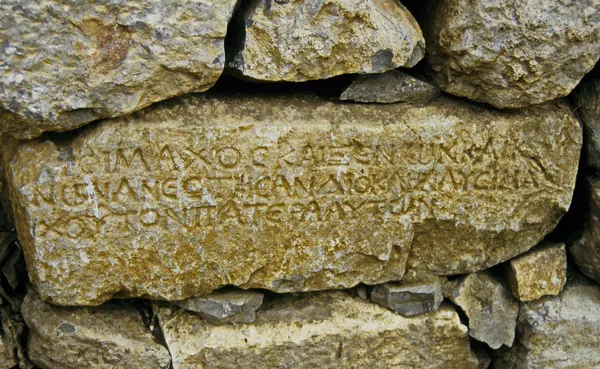 ϹΙΜΑΧΟϹΚΑΙΞΕΝΙΩΝΚΑΙ
ΝΙΩΝΑΝΕϹΤΗϹΑΝΔΙΟΚΛΗΛΥϹΙΜΑ
ΧΟΥΤΟΝΠΑΤΕΡΑΑΥΤΩΝ